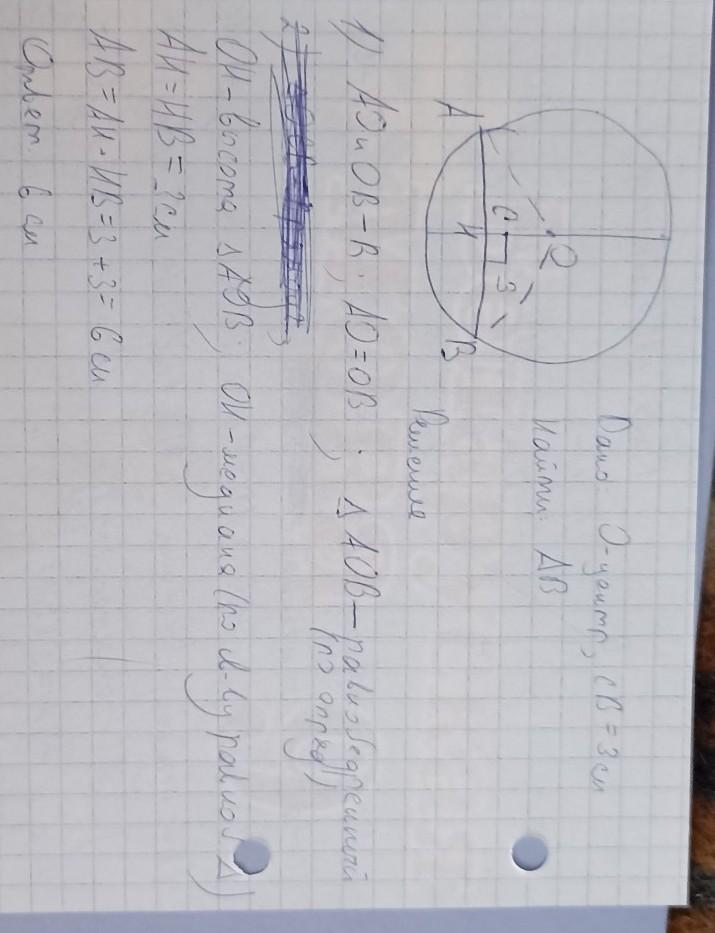 A
C
O
H
3
B
Дано: О-центр, CB = 3 см
Найти: AB
Решение
1) AO и OB – R; AO = OB; Δ AOB — равнобедренный
(по опред)
2)
OH - высота Δ AOB; OH - медиана (по св-ву равноб. Δ)
AH = HB = 3 см
AB = AH + HB = 3 + 3 = 6 см
Ответ: 6 см